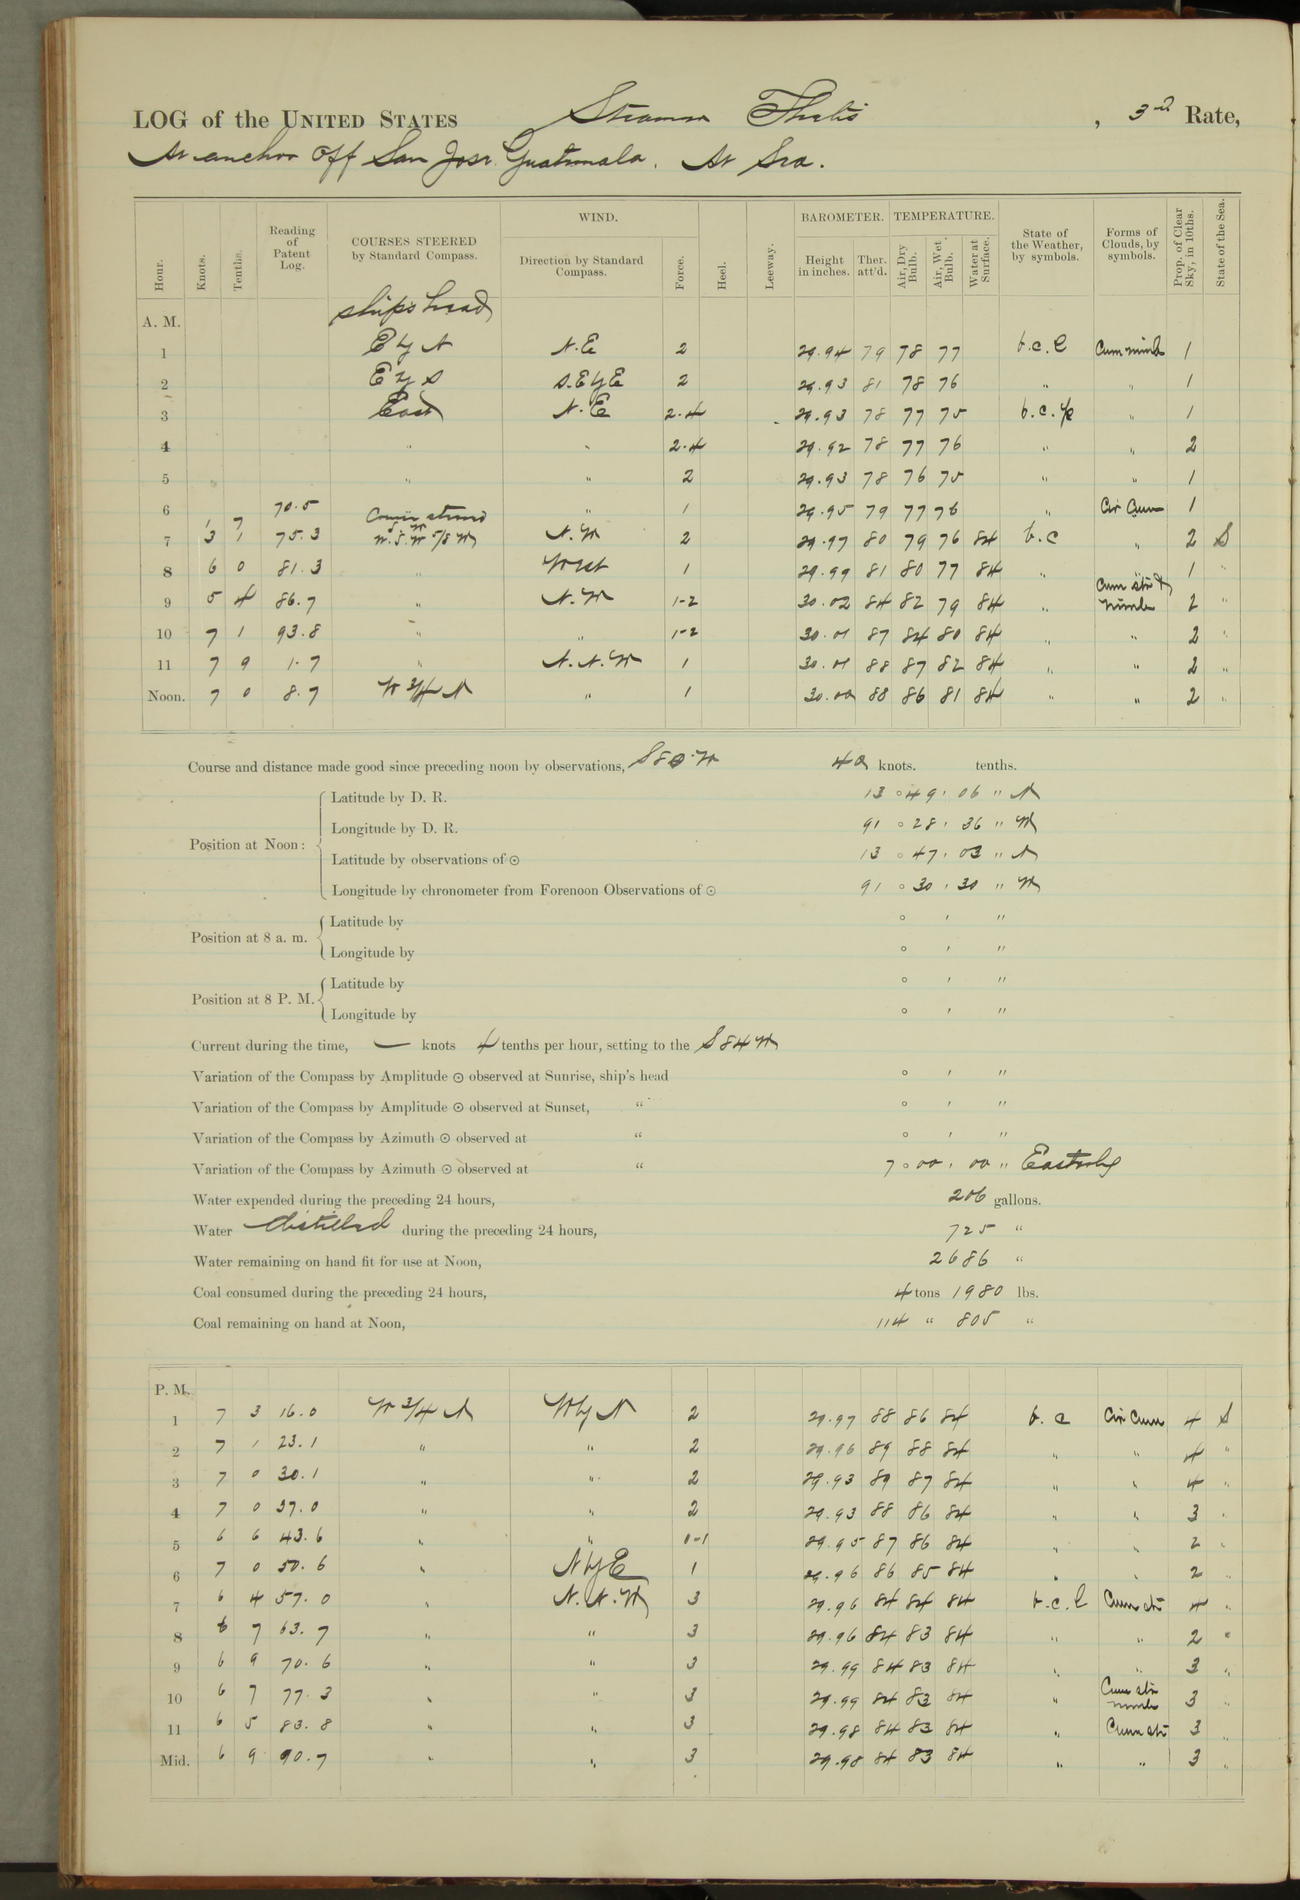 LOG of the UNITED STATES Steamer Thetis, 3rd Rate,
At anchor off San Jose Guatemala. At Sea.
Hour. Knots. Tenths. Reading of Patent Log. COURSES STEERED by Standard Compass. WIND. Direction by Standard Compass. Force. Heel. Leeway. BAROMETER. Height in inches. Ther. att'd. TEMPERATURE. Air, Dry Bulb. Air, Wet Bulb. Water at Surface. State of the Weather, by symbols. Forms of Clouds, by symbols. Prop. of Clear Sky, in 10ths. State of the Sea.
A. M. ship's head
1 E by N N.E 2 29.94 79 78 77 b.c.l Cum nimb 1
2 E by S S.E by E 2 29.93 81 78 76 " " 1
3 East N.E 2-4 29.93 78 77 75 " 1
4 " " 2-4 29.92 78 77 76 " " 2
5 " " 2 29.93 78 76 75 " " 1
6 1 7 70.5 Course steered " 1 29.95 79 77 76 " Cir Cum 1
7 3 1 75.3 N.W 2 29.97 80 79 76 84 b.c " 2 S
8 6 0 81.3 " West 1 29.99 81 80 77 84 " 1 "
9 5 4 86.7 " N.W 1-2 30.02 84 82 79 84 " Cum str & Nimb 2 "
10 7 1 93.8 " " 1-2 30.01 87 84 80 84 " " 2 "
11 7 9 1.7 " N.N.W 1 30.01 88 87 82 84 " " 2 "
Noon. 7 0 8.7 W 3/4 N " 1 30.00 88 86 81 84 " " 2 "
Course and distance made good since preceding noon by observations, S 80 W 40 knots. tenths.
Position at Noon:
Latitude by D. R. 13 ° 49 ' 06 " N
Longitude by D. R. 91 ° 28 ' 36 " W
Latitude by observations of ☉ 13 ° 47 ' 03 " N
Longitude by chronometer from Forenoon Observations of ☉ 91 ° 30 ' 30 " W
Position at 8 a. m.
Latitude by ° ' "
Longitude by ° ' "
Position at 8 P. M.
Latitude by ° ' "
Longitude by ° ' "
Current during the time, — knots 4 tenths per hour, setting to the S 84 W
Variation of the Compass by Amplitude ☉ observed at Sunrise, ship's head ° ' "
Variation of the Compass by Amplitude ☉ observed at Sunset, " ° ' "
Variation of the Compass by Azimuth ☉ observed at " ° ' "
Variation of the Compass by Azimuth ☉ observed at " 7 ° 00 ' 00 " Easterly
Water expended during the preceding 24 hours, 206 gallons.
Water distilled during the preceding 24 hours, 725 "
Water remaining on hand fit for use at Noon, 2686 "
Coal consumed during the preceding 24 hours, 4 tons 1980 lbs.
Coal remaining on hand at Noon, 114 " 805 "
P. M.
1 7 3 16.0 W 3/4 N W by N 2 29.97 88 86 84 b.c Cir Cum 4 S
2 7 1 23.1 " " 2 29.96 89 88 84 " " 4 "
3 7 0 30.1 " " 2 29.93 89 87 84 " " 4 "
4 7 0 37.0 " " 2 29.93 88 86 84 " " 3 "
5 6 6 43.6 " " 0-1 29.95 87 86 84 " " 2 "
6 7 0 50.6 " N by E 1 29.96 86 85 84 " " 2 "
7 6 4 57.0 " N.N.W 3 29.96 84 84 84 b.c.l Cum str 4 "
8 6 7 63.7 " " 3 29.96 84 83 84 " " 2 "
9 6 9 70.6 " " 3 29.99 84 83 84 " " 3 "
10 6 7 77.3 " " 3 29.99 84 83 84 " Cum str nimb 3 "
11 6 5 83.8 " " 3 29.98 84 83 84 " Cum str 3 "
Mid. 6 9 90.7 " " 3 29.98 84 83 84 " " 3 "